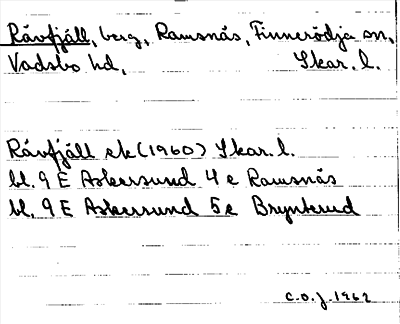 Råvfjäll, berg, Ramsnäs, Finnerödja sn,
Vadsbo hd, Skar. l.
Råvfjäll ek (1960) Skar. l.
bl. 9 E Askersund 4 e Ramsnäs
bl. 9 E Askersund 5 e Brynterud
C.O.J. 1962